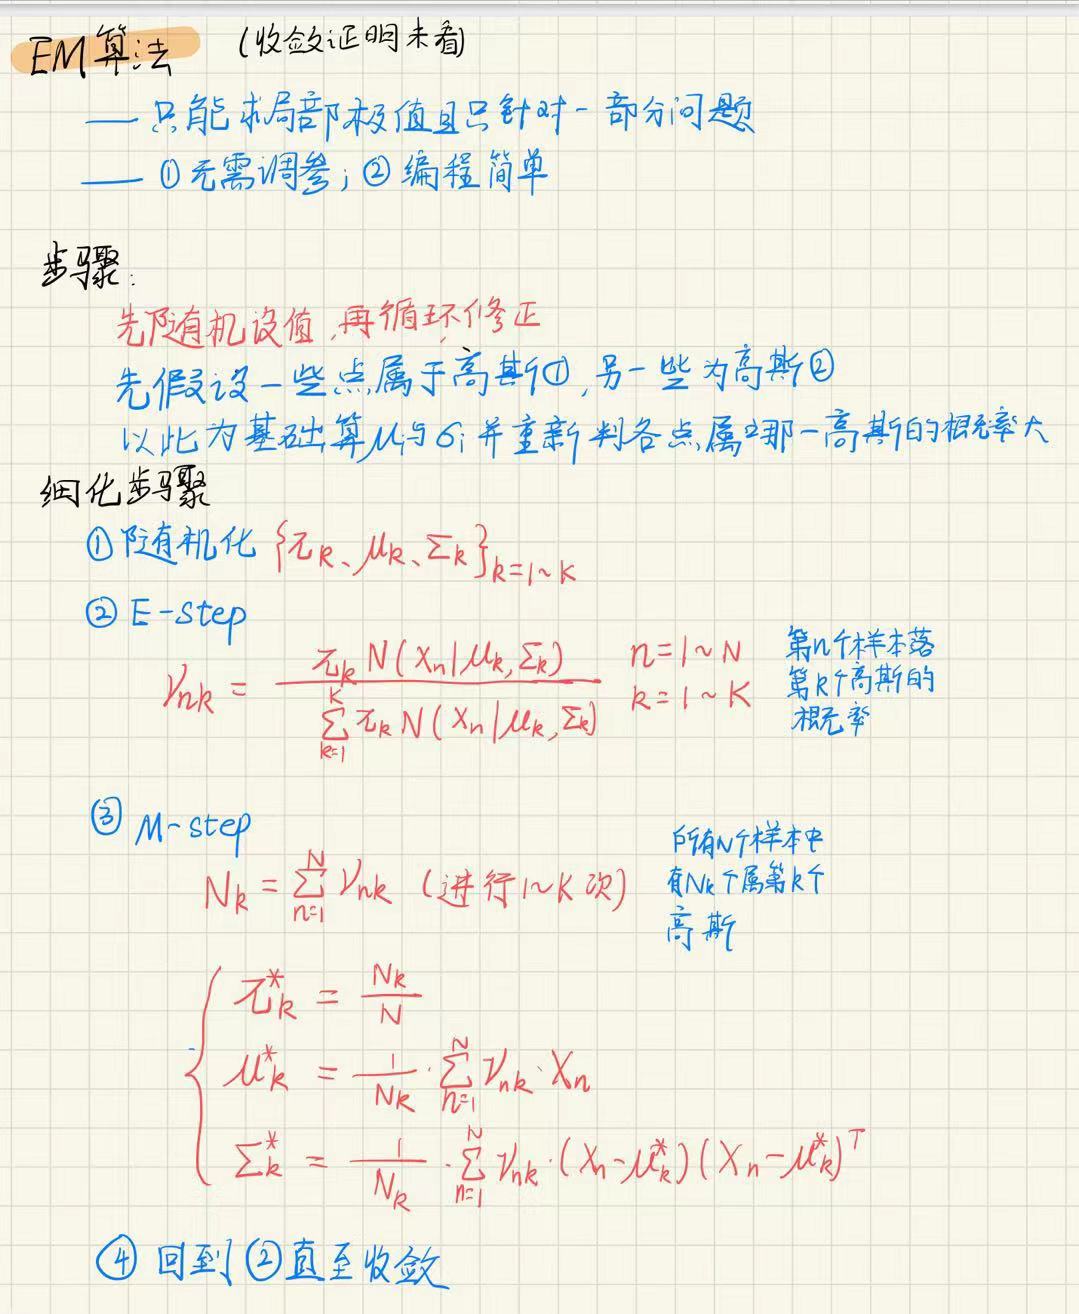 EM算法 (收敛证明未看)
— 只能求局部极值且只针对一部分问题
— ①无需调参；②编程简单
步骤：
先随机设值，再循环修正
先假设一些点属于高斯①，另一些为高斯②
以此为基础算μi与σi并重新判各点属于哪一高斯的概率大
细化步骤
①随机化 {π_k、μ_k、Σ_k}_{k=1~K}
②E-step
γ_nk = π_k N(x_n|μ_k,Σ_k) / Σ_{k=1}^{K} π_k N(x_n|μ_k,Σ_k) n=1~N k=1~K
第n个样本落
第k个高斯的
概率
③M-step
N_k = Σ_{n=1}^{N} γ_nk (进行1~K次)
所有N个样本中
有N_k个属第k个
高斯
π*_k = N_k / N
μ*_k = 1/N_k · Σ_{n=1}^{N} γ_nk · x_n
Σ*_k = 1/N_k · Σ_{n=1}^{N} γ_nk · (x_n-μ*_k)(x_n-μ*_k)^T
④回到②直至收敛